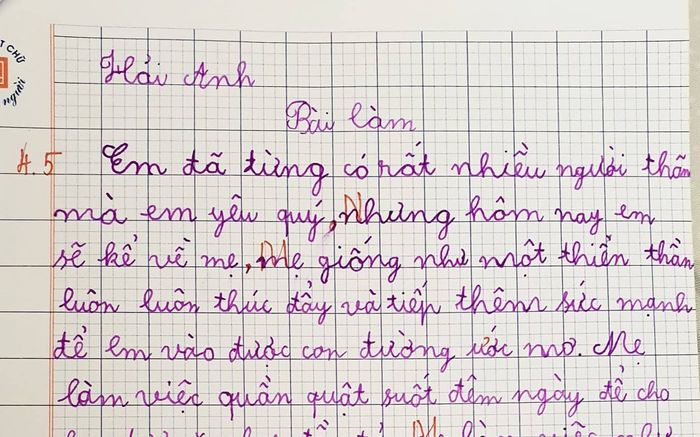 T CHỮ
NGƯỜI
Hải Anh
Bài làm
4.5 Em đã từng có rất nhiều người thân
mà em yêu quý, Nhưng hôm nay em
sẽ kể về mẹ, Mẹ giống như một thiên thần
luôn luôn thúc đẩy và tiếp thêm sức mạnh
để em vào được con đường ước mơ. Mẹ
làm việc quần quật suốt đêm ngày để cho